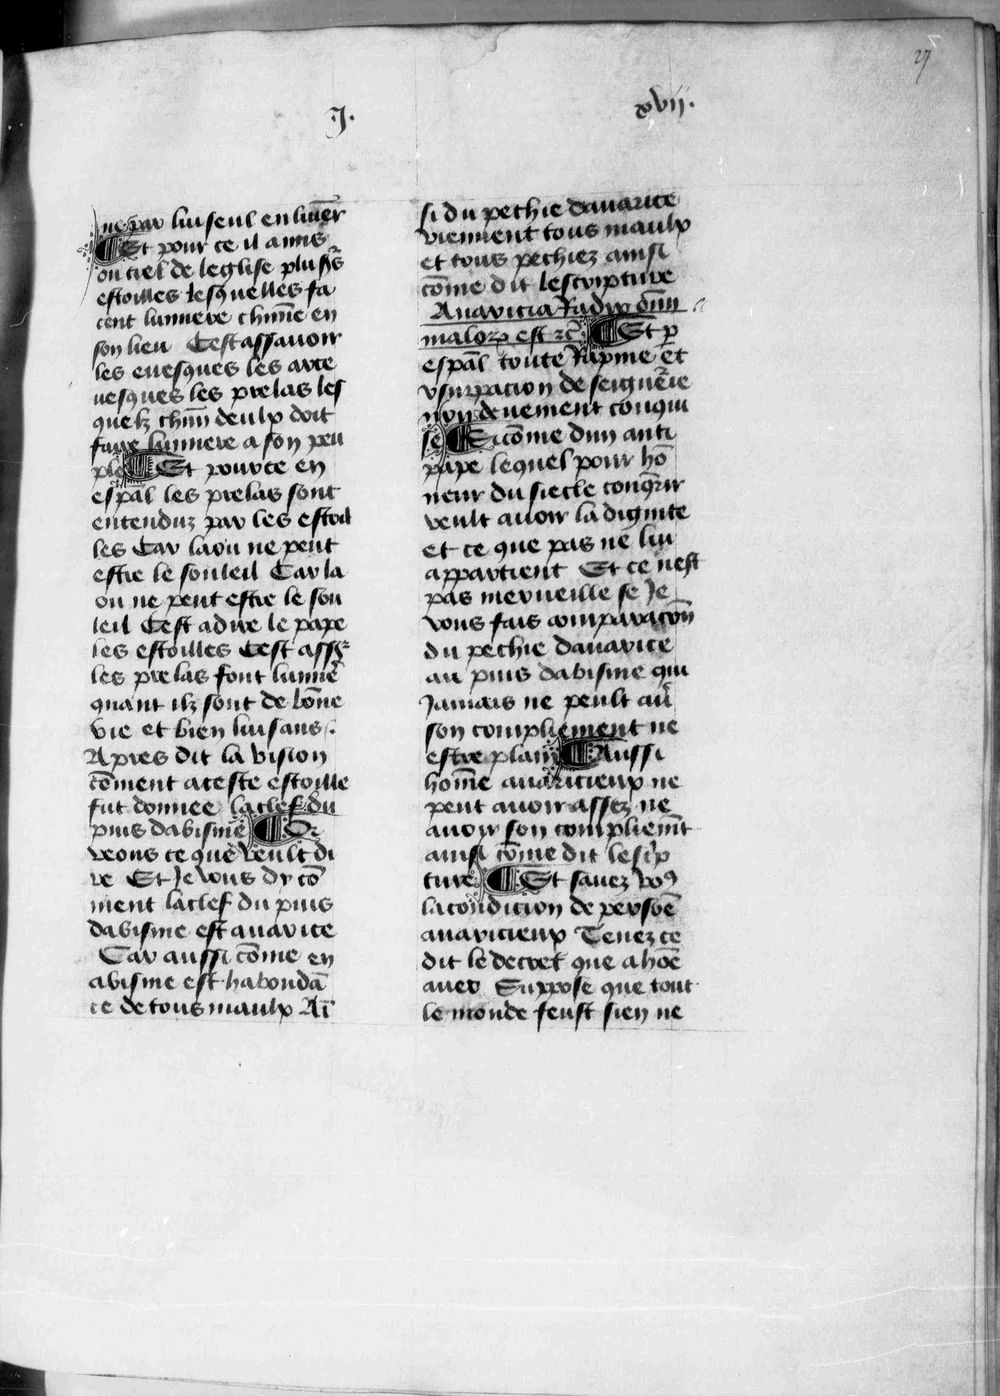 27
.J. xvii.
ne par lui seul enluiēr
¶ Et pour ce il a mis
ou ciel de leglise plus̄rs
estoilles lesquelles fa
cent lumiere chūne en
son lieu Cest assauoir
les euesques les arce
uesques les prelas les
quelz chūn deulx doit
faire lumiere a son peu
ple ¶ Et pource en
esp̄al les prelas sont
entenduz par les estoil
les Car la ou ne peut
estre le souleil Car la
ou ne peut estre le sou
leil Cest adire le pape
les estoilles Cest assr̄
les prelas font lumiē
quant ilz sont de bōne
vie et bien luisans .
Apres dit la vision
cōment aceste estoille
fut donnee laclef du
puis dabisme ¶ Or
veons ce que veult di
re Et Je vous dy cō
ment laclef du puis
dabisme est auarice
Car aussi cōme en
abisme est habondā
ce de tous maulx Aī
si du pechie dauarice
viennent tous maulx
et tous pechiez ainsi
cōme dit lescripture
Auaricia Radix om̄i
maloꝝ est ꝛc̄ ¶ Et p̱
esp̄al toute Rapine et
vsurpacion de seigneūie
non deuement conqui
se ¶ Si cōme dun anti
pape lequel pour hō
neur du siecle conq̄rir
veult auoir la dignite
et ce que pas ne lui
appartient Et ce nest
pas merueille se Je
vous fais comparacōn
du pechie dauarice
au puis dabisme qui
Jamais ne peult aū
son compliement ne
estre plain ¶ Aussi
hom̄e auaricieux ne
peut auoir assez ne
auoir son compliem̄t
ainsi cōme dit lesc̄ip
ture ¶ Et sauez voꝰ
lacondicion de persōe
auaricieux Tenez ce
dit le decret que a hōe
auer Suppose que tout
le monde feust sien ne